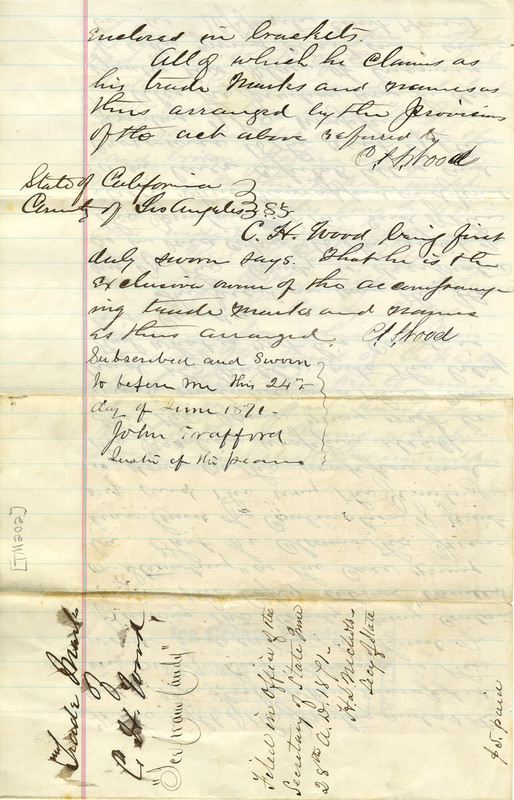 Enclosed in brackets.
All of which he claims as
his trade marks and names as
thus arranged by the provisions
of the act above referred to
C. H. Wood
State of California
County of Los Angeles } SS
C. H. Wood being first
duly sworn says. That he is the
exclusive owner of the accompany-
ing trade marks and names
as thus arranged. C. H. Wood
Subscribed and Sworn
to before me this 24th
day of June 1871-
John Trafford
Justice of the peace
[TM202]
Trade Mark
of
C. H. Wood
"Ice Cream Candy"
Filed in Office of the
Secretary of State June
28th A.D. 1871-
H. L. Nichols
Secy of State
$5. paid